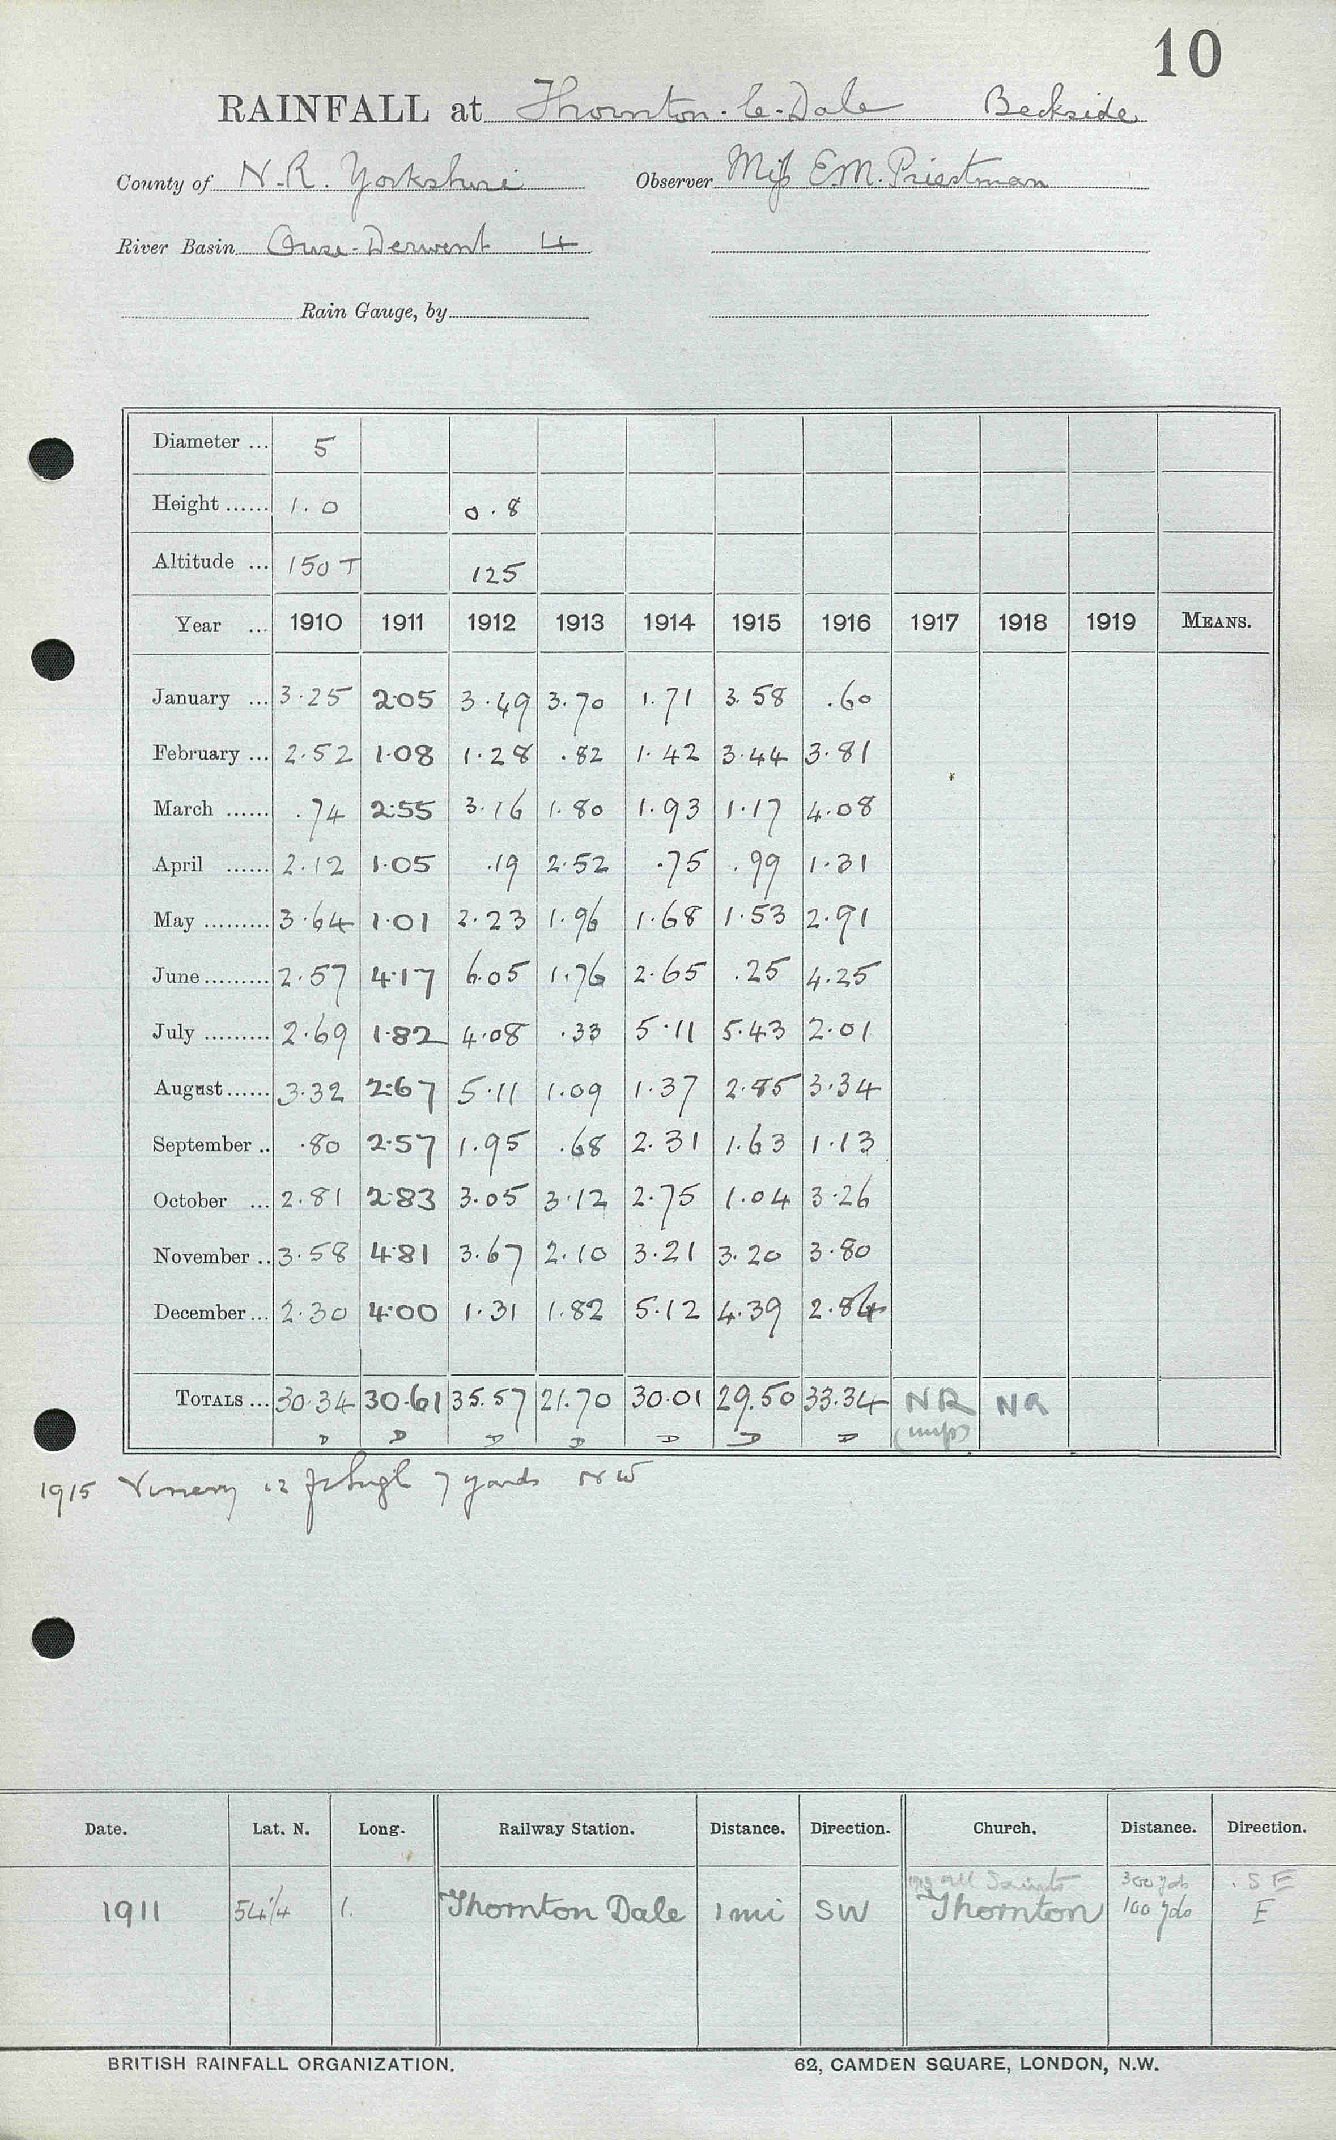 10
RAINFALL at Thornton-le-Dale Beckside
County of N.R. Yorkshire Observer Miss E.M. Priestman
River Basin Ouse-Derwent 4
Rain Gauge, by
Diameter ... 5
Height ...... 1.0 0.8
Altitude ... 150 T 125
Year ... 1910 1911 1912 1913 1914 1915 1916 1917 1918 1919 MEANS.
January ... 3.25 2.05 3.49 3.70 1.71 3.58 .60
February ... 2.52 1.08 1.28 .82 1.42 3.44 3.81
March ...... .74 2.55 3.16 1.80 1.93 1.17 4.08
April ...... 2.12 1.05 .19 2.52 .75 .99 1.31
May ......... 3.64 1.01 2.23 1.96 1.68 1.53 2.91
June ......... 2.57 4.17 6.05 1.76 2.65 .25 4.25
July ......... 2.69 1.82 4.08 .33 5.11 5.43 2.01
August ...... 3.32 2.67 5.11 1.09 1.37 2.85 3.34
September .. .80 2.57 1.95 .68 2.31 1.63 1.13
October ... 2.81 2.83 3.05 3.12 2.75 1.04 3.26
November .. 3.58 4.81 3.67 2.10 3.21 3.20 3.80
December ... 2.30 4.00 1.31 1.82 5.12 4.39 2.84
TOTALS ... 30.34 30.61 35.57 21.70 30.01 29.50 33.34 NR NR
D D D D D D D
1915 Vinery 12 ft high 7 yards NW
Date. Lat. N. Long. Railway Station. Distance. Direction. Church. Distance. Direction.
All Saints 300 yds S E
1911 54 1/4 1. Thornton Dale 1 mi SW Thornton 100 yds E
BRITISH RAINFALL ORGANIZATION. 62, CAMDEN SQUARE, LONDON, N.W.